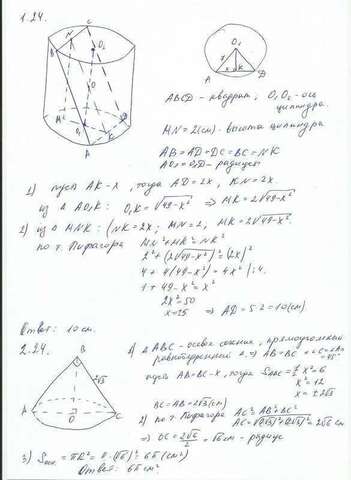 1.24.
ABCD - квадрат, O₁O₂ - ось
цилиндра.
MN = 2(см) - высота цилиндра
AB = AD = DC = BC = NK
AO₁ = O₁D - радиусы
1) пусть AK - x, тогда AD = 2x, KN = 2x
из Δ AO₁K: O₁K = √49-x² ⇒ MK = 2√49-x²
2) из Δ MNK: (NK = 2x; MN = 2, MK = 2√49-x²
по т. Пифагора MN² + MK² = NK²
2² + (2√49-x²)² = (2x)²
4 + 4(49-x²) = 4x² | :4.
1 + 49 - x² = x²
2x² = 50
x = 25 ⇒ AD = 5·2 = 10(см)
Ответ: 10 см.
2.24.
1) Δ ABC - осевое сечение, прямоугольный
равнобедренный Δ ⇒ AB = BC
= 45°
пусть AB = BC - x, тогда S = ½ x² = 6
x² = 12
x = ± 2√3
BC = AB = 2√3 (см)
2) по т. Пифагора AC² = AB² + BC²
AC = √(2√3)² + (2√3)² = 2√6 см
⇒ OC = 2√6/2 = √6 см - радиус
3) Sосн. = πR² = π·(√6)² = 6π (см²)
Ответ: 6π см²